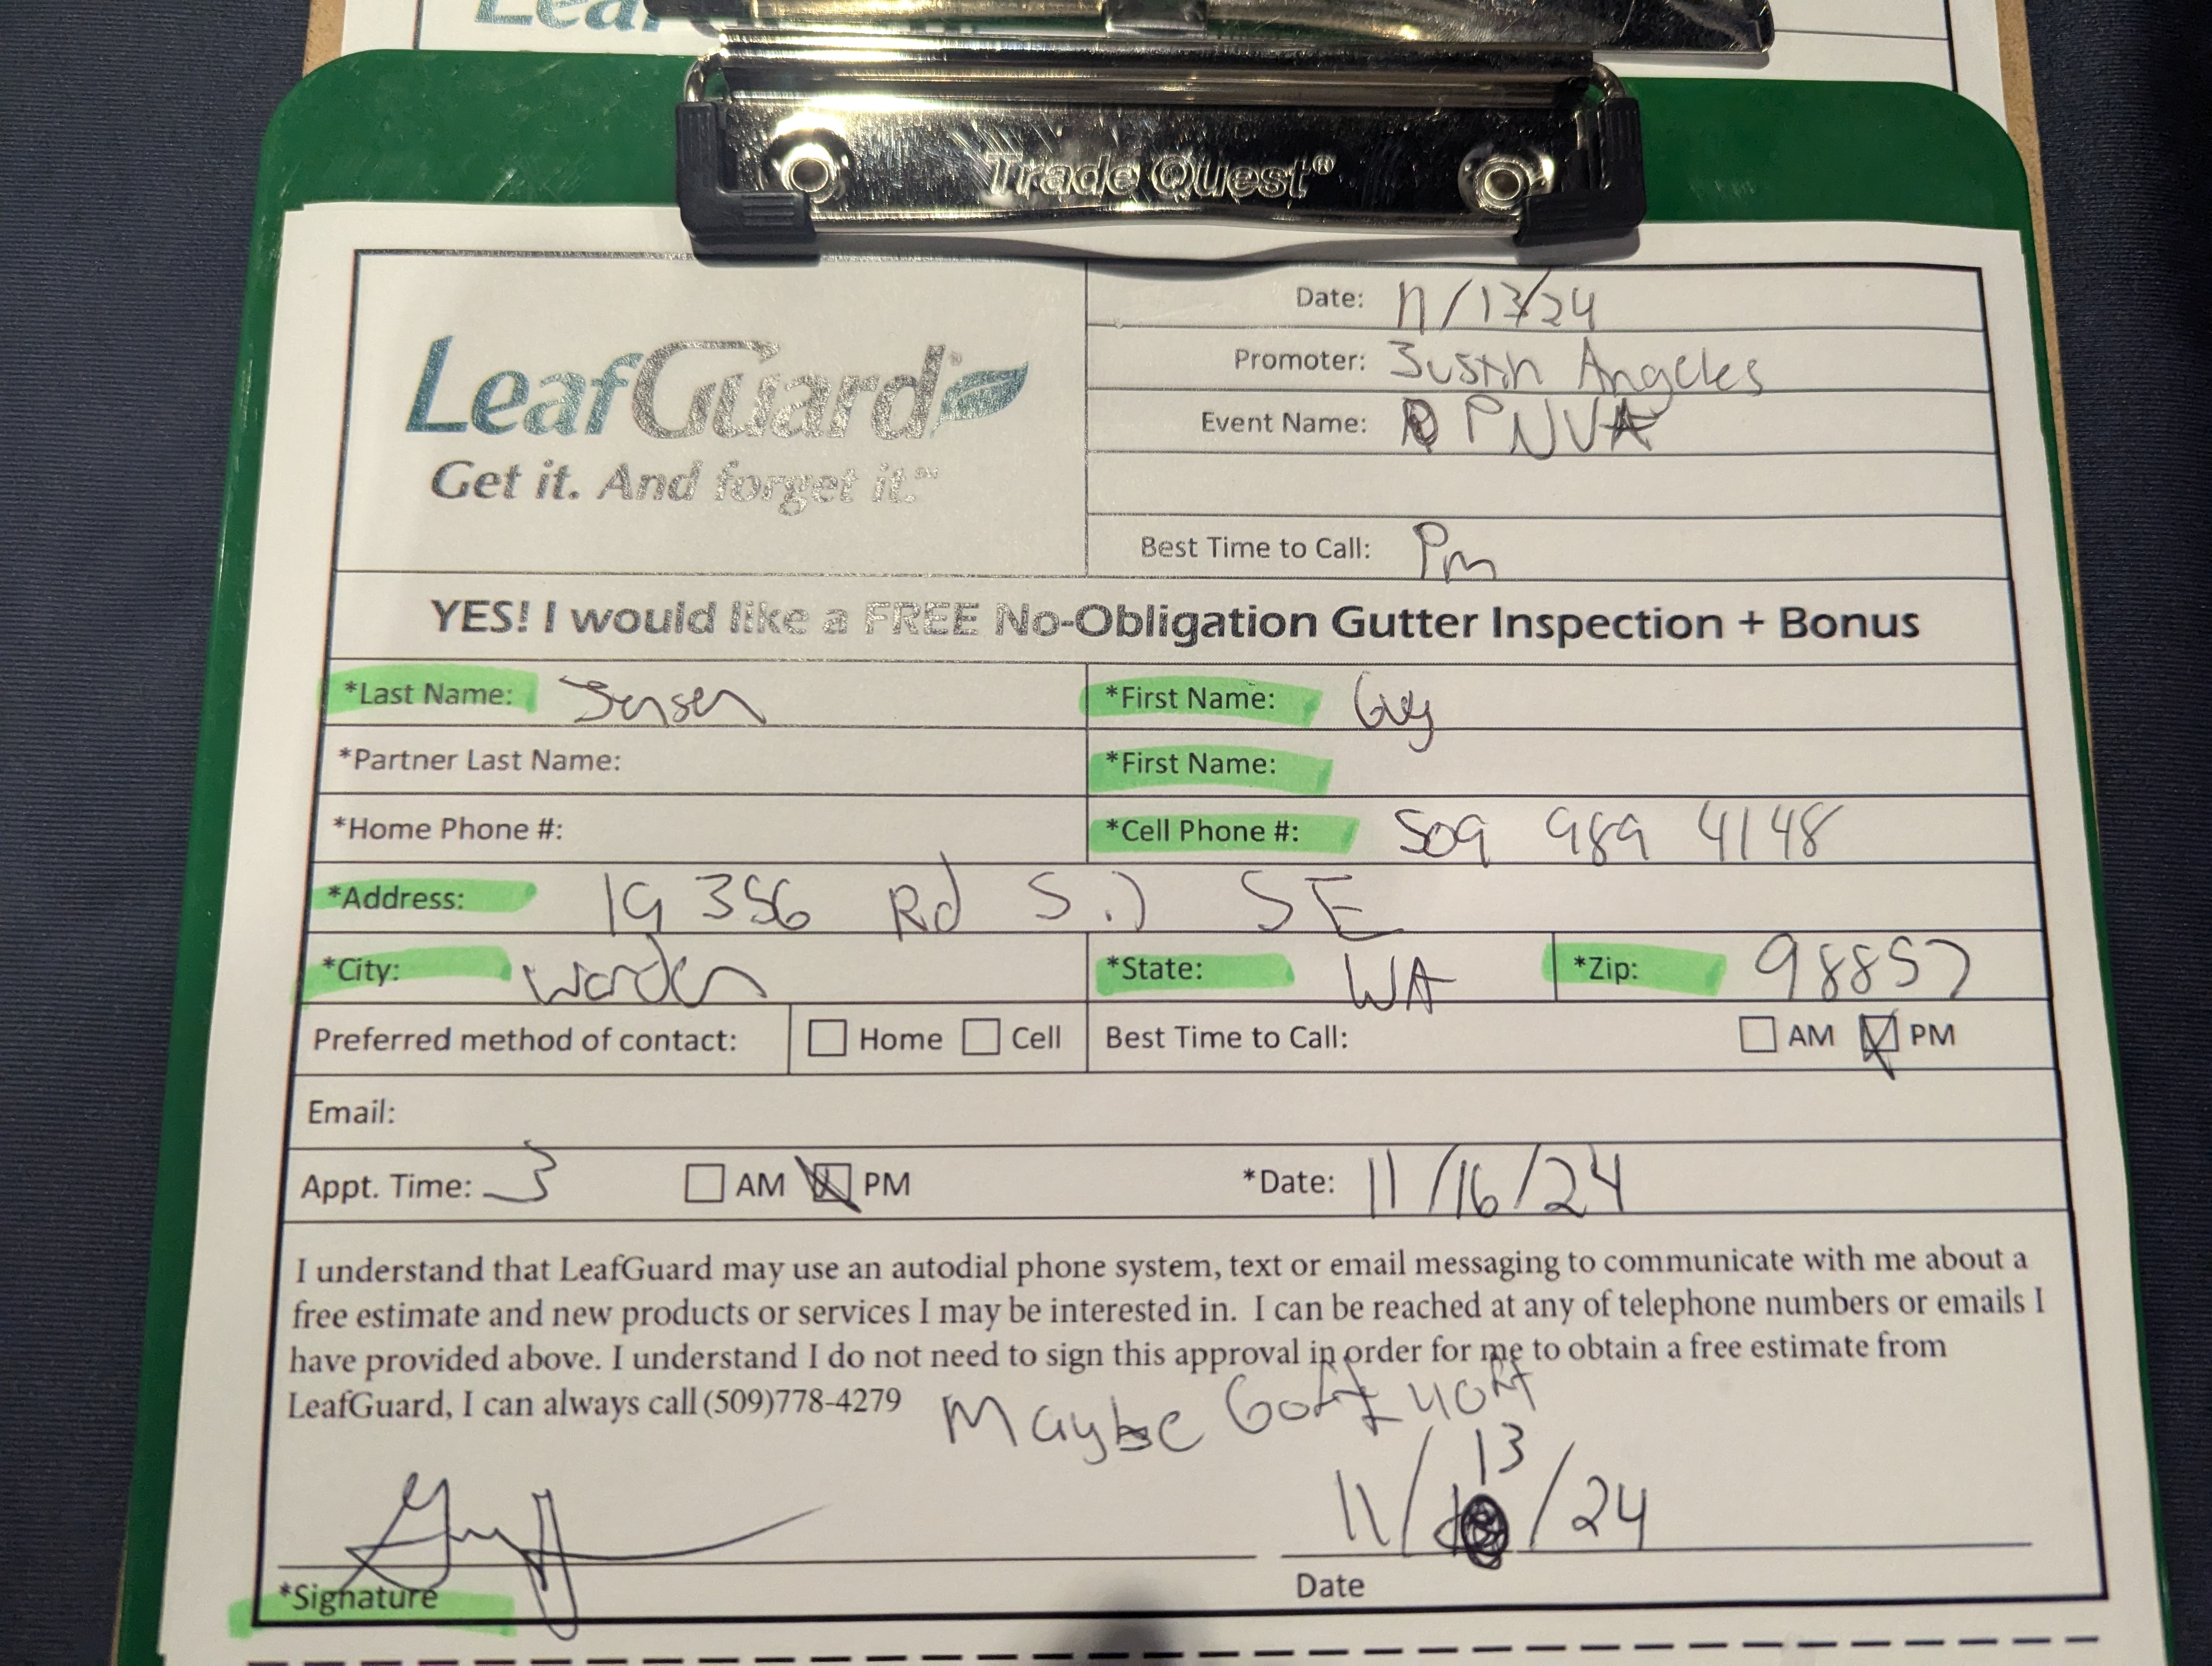 Trade Quest®
LeafGuard®
Get it. And forget it.℠
Date: 11/13/24
Promoter: Justin Angeles
Event Name: PNVA
Best Time to Call: Pm
YES! I would like a FREE No-Obligation Gutter Inspection + Bonus
*Last Name: Jensen *First Name: Guy
*Partner Last Name: *First Name:
*Home Phone #: *Cell Phone #: 509 989 4148
*Address: 19356 Rd S. SE
*City: Warden *State: WA *Zip: 98857
Preferred method of contact: Home Cell Best Time to Call: AM PM
Email:
Appt. Time: 3 AM PM *Date: 11/16/24
I understand that LeafGuard may use an autodial phone system, text or email messaging to communicate with me about a
free estimate and new products or services I may be interested in. I can be reached at any of telephone numbers or emails I
have provided above. I understand I do not need to sign this approval in order for me to obtain a free estimate from
LeafGuard, I can always call (509)778-4279
Maybe 60ft 40ft
13
11/ /24
*Signature Date